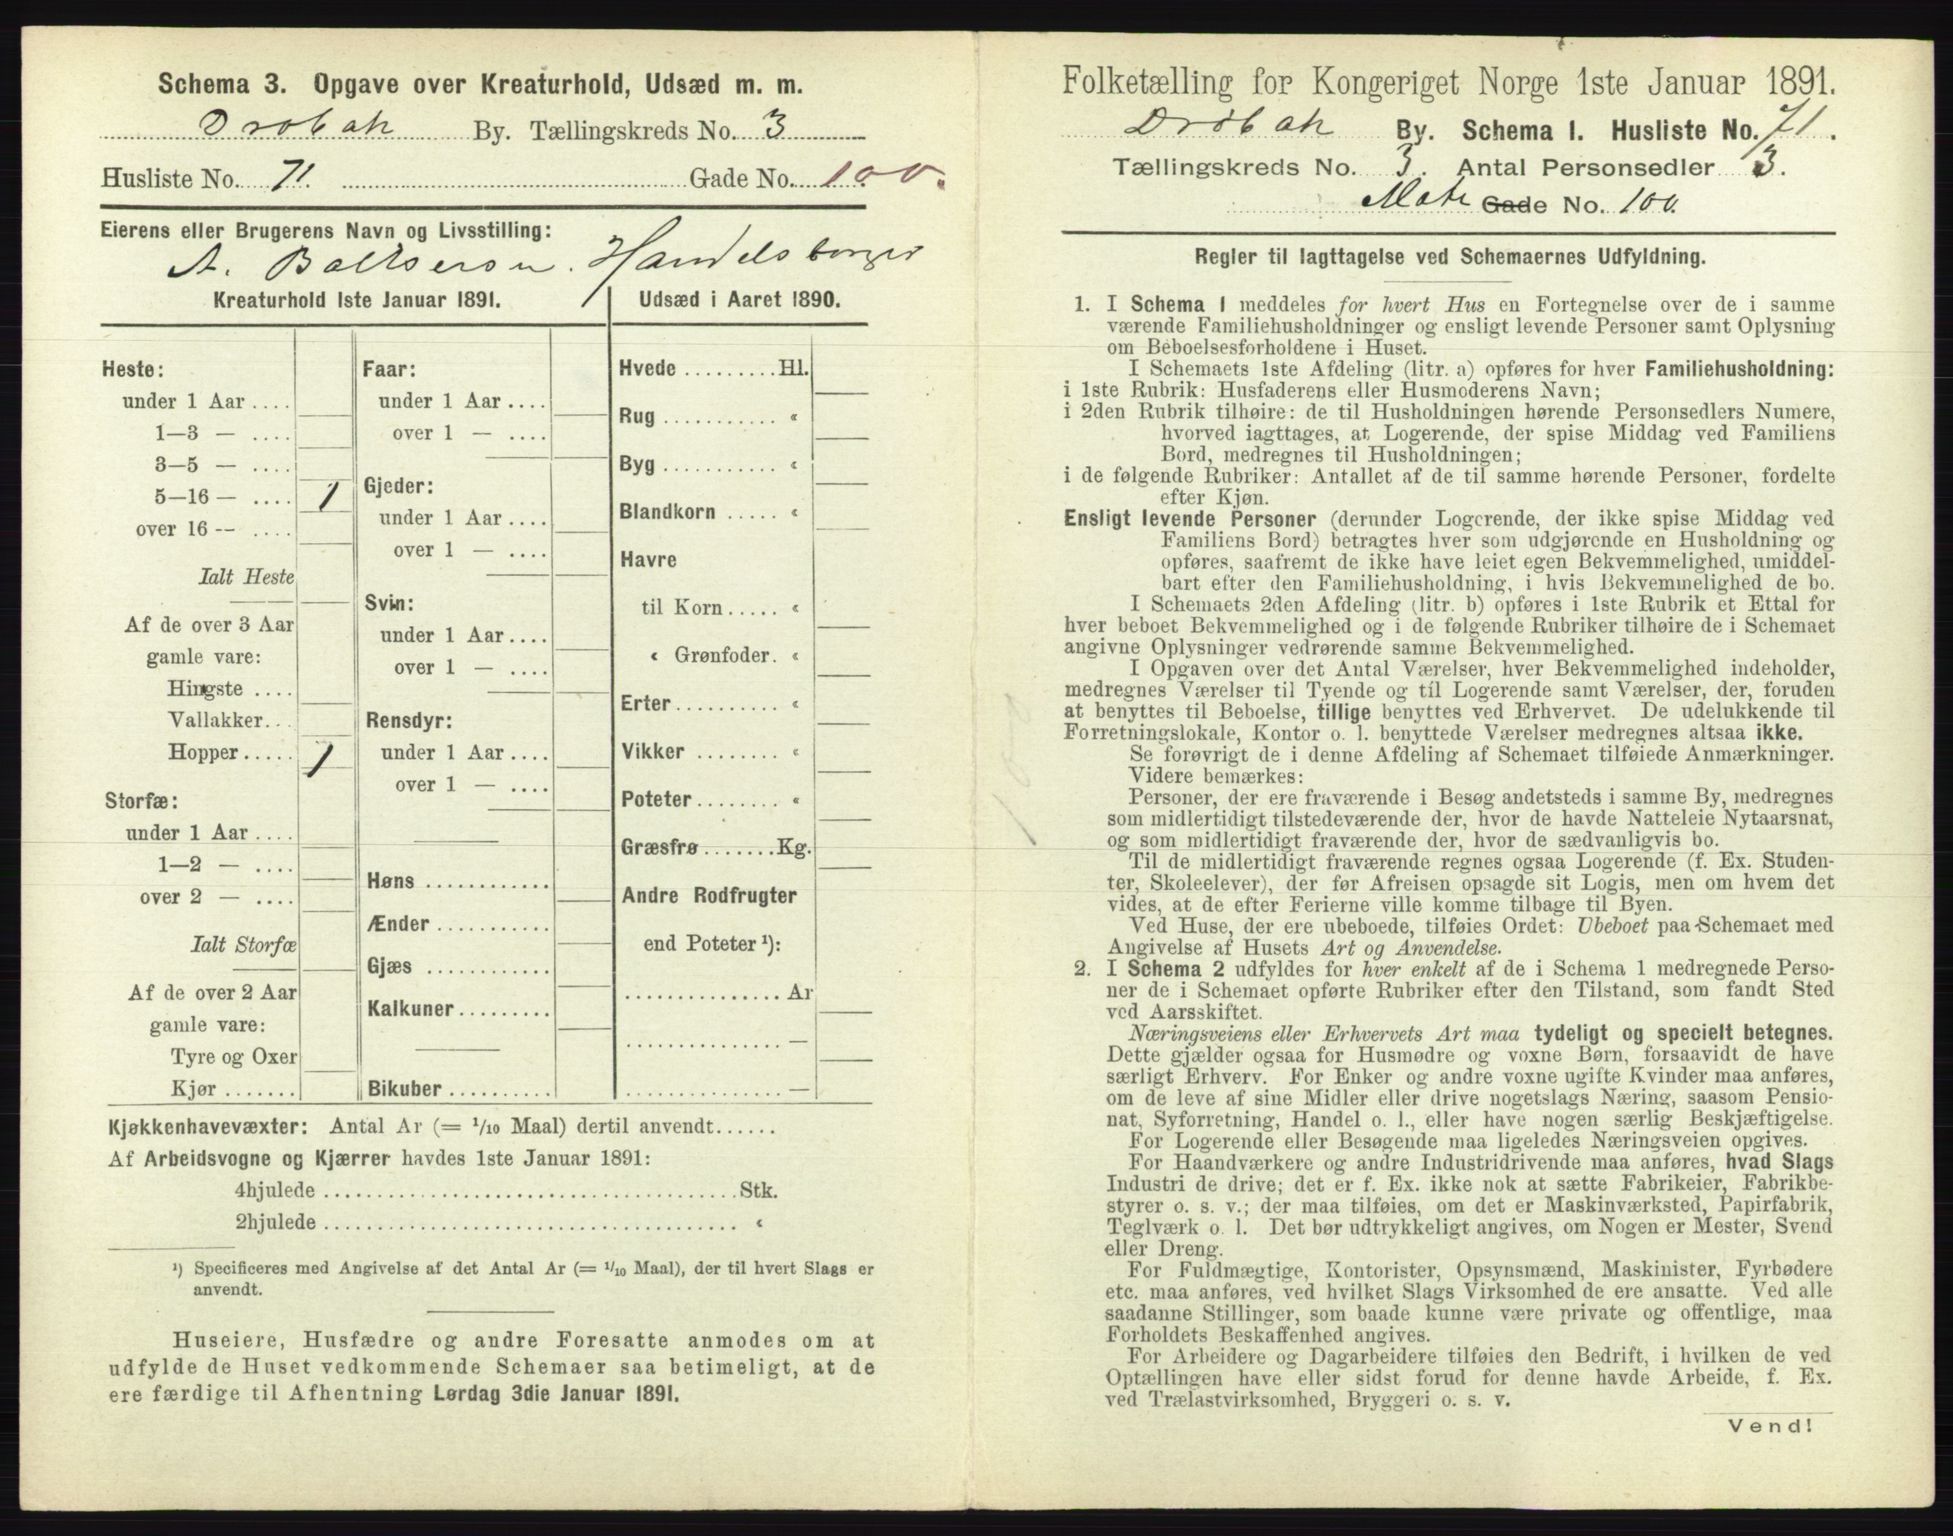 Schema 3. Opgave over Kreaturhold, Udsæd m. m.
Drøbak By. Tællingskreds No. 3
Husliste No. 71. Gade No. 100.
Eierens eller Brugerens Navn og Livsstilling:
A. Baltserson. Handelsborger
Kreaturhold 1ste Januar 1891.
Heste:
under 1 Aar ....
1—3 — ....
3—5 — ....
5—16 — .... 1
over 16 — ....
Ialt Heste
Af de over 3 Aar
gamle vare:
Hingste ....
Vallakker...
Hopper ..... 1
Storfæ:
under 1 Aar ....
1—2 — ....
over 2 — ....
Ialt Storfæ
Af de over 2 Aar
gamle vare:
Tyre og Oxer
Kjør .......
Faar:
under 1 Aar ....
over 1 — ....
Gjeder:
under 1 Aar ....
over 1 — ....
Svin:
under 1 Aar ....
over 1 — ....
Rensdyr:
under 1 Aar ....
over 1 — ....
Høns ............
Ænder ...........
Gjæs ............
Kalkuner .........
Bikuber ..........
Udsæd i Aaret 1890.
Hvede ......... Hl.
Rug ........... «
Byg ........... «
Blandkorn ..... «
Havre
til Korn ..... «
« Grønfoder. «
Erter ......... «
Vikker ........ «
Poteter ........ «
Græsfrø ....... Kg.
Andre Rodfrugter
end Poteter ¹):
............... Ar
............... —
............... —
Kjøkkenhavevæxter: Antal Ar (= 1/10 Maal) dertil anvendt......
Af Arbeidsvogne og Kjærrer havdes 1ste Januar 1891:
4hjulede ...................................... Stk.
2hjulede ...................................... «
¹) Specificeres med Angivelse af det Antal Ar (= 1/10 Maal), der til hvert Slags er
anvendt.
Huseiere, Husfædre og andre Foresatte anmodes om at
udfylde de Huset vedkommende Schemaer saa betimeligt, at de
ere færdige til Afhentning Lørdag 3die Januar 1891.
Folketælling for Kongeriget Norge 1ste Januar 1891.
Drøbak By. Schema 1. Husliste No. 71.
Tællingskreds No. 3. Antal Personsedler 3.
Matr Gade No. 100.
Regler til Iagttagelse ved Schemaernes Udfyldning.
1. I Schema 1 meddeles for hvert Hus en Fortegnelse over de i samme
værende Familiehusholdninger og ensligt levende Personer samt Oplysning
om Beboelsesforholdene i Huset.
I Schemaets 1ste Afdeling (litr. a) opføres for hver Familiehusholdning:
i 1ste Rubrik: Husfaderens eller Husmoderens Navn;
i 2den Rubrik tilhøire: de til Husholdningen hørende Personsedlers Numere,
hvorved iagttages, at Logerende, der spise Middag ved Familiens
Bord, medregnes til Husholdningen;
i de følgende Rubriker: Antallet af de til samme hørende Personer, fordelte
efter Kjøn.
Ensligt levende Personer (derunder Logerende, der ikke spise Middag ved
Familiens Bord) betragtes hver som udgjørende en Husholdning og
opføres, saafremt de ikke have leiet egen Bekvemmelighed, umiddel-
bart efter den Familiehusholdning, i hvis Bekvemmelighed de bo.
I Schemaets 2den Afdeling (litr. b) opføres i 1ste Rubrik et Ettal for
hver beboet Bekvemmelighed og i de følgende Rubriker tilhøire de i Schemaet
angivne Oplysninger vedrørende samme Bekvemmelighed.
I Opgaven over det Antal Værelser, hver Bekvemmelighed indeholder,
medregnes Værelser til Tyende og til Logerende samt Værelser, der, foruden
at benyttes til Beboelse, tillige benyttes ved Erhvervet. De udelukkende til
Forretningslokale, Kontor o. l. benyttede Værelser medregnes altsaa ikke.
Se forøvrigt de i denne Afdeling af Schemaet tilføiede Anmærkninger.
Videre bemærkes:
Personer, der ere fraværende i Besøg andetsteds i samme By, medregnes
som midlertidigt tilstedeværende der, hvor de havde Natteleie Nytaarsnat,
og som midlertidigt fraværende der, hvor de sædvanligvis bo.
Til de midlertidigt fraværende regnes ogsaa Logerende (f. Ex. Studen-
ter, Skoleelever), der før Afreisen opsagde sit Logis, men om hvem det
vides, at de efter Ferierne ville komme tilbage til Byen.
Ved Huse, der ere ubeboede, tilføies Ordet: Ubeboet paa Schemaet med
Angivelse af Husets Art og Anvendelse.
2. I Schema 2 udfyldes for hver enkelt af de i Schema 1 medregnede Perso-
ner de i Schemaet opførte Rubriker efter den Tilstand, som fandt Sted
ved Aarsskiftet.
Næringsveiens eller Erhvervets Art maa tydeligt og specielt betegnes.
Dette gjælder ogsaa for Husmødre og voxne Børn, forsaavidt de have
særligt Erhverv. For Enker og andre voxne ugifte Kvinder maa anføres,
om de leve af sine Midler eller drive nogetslags Næring, saasom Pensio-
nat, Syforretning, Handel o. l., eller have nogen særlig Beskjæftigelse.
For Logerende eller Besøgende maa ligeledes Næringsveien opgives.
For Haandværkere og andre Industridrivende maa anføres, hvad Slags
Industri de drive; det er f. Ex. ikke nok at sætte Fabrikeier, Fabrikbe-
styrer o. s. v.; der maa tilføies, om det er Maskinværksted, Papirfabrik,
Teglværk o. l. Det bør udtrykkeligt angives, om Nogen er Mester, Svend
eller Dreng.
For Fuldmægtige, Kontorister, Opsynsmænd, Maskinister, Fyrbødere
etc. maa anføres, ved hvilket Slags Virksomhed de ere ansatte. Ved alle
saadanne Stillinger, som baade kunne være private og offentlige, maa
Forholdets Beskaffenhed angives.
For Arbeidere og Dagarbeidere tilføies den Bedrift, i hvilken de ved
Optællingen have eller sidst forud for denne havde Arbeide, f. Ex.
ved Trælastvirksomhed, Bryggeri o. s. v.
Vend!